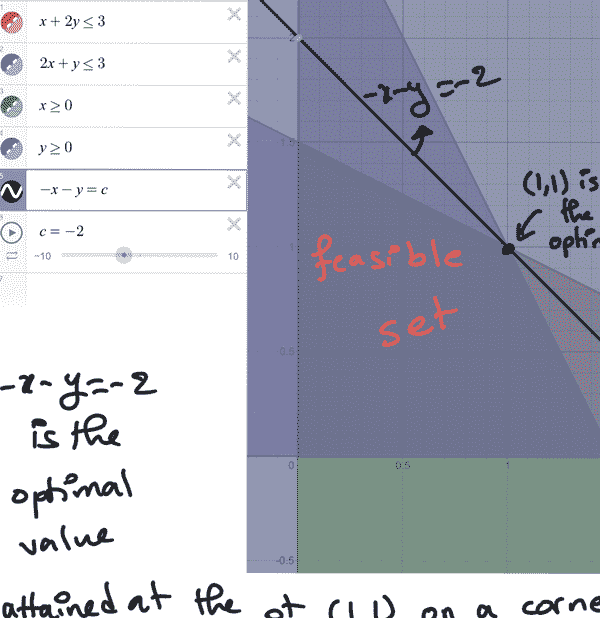 x + 2y ≤ 3
2x + y ≤ 3
x ≥ 0
y ≥ 0
−x − y = c
c = −2
−10 10
2
1.5
1
0.5
0 0.5 1
-0.5
-x-y=-2
(1,1) is
the
optim
feasible
set
-x-y=-2
is the
optimal
value
attained at the pt (1,1) on a corne